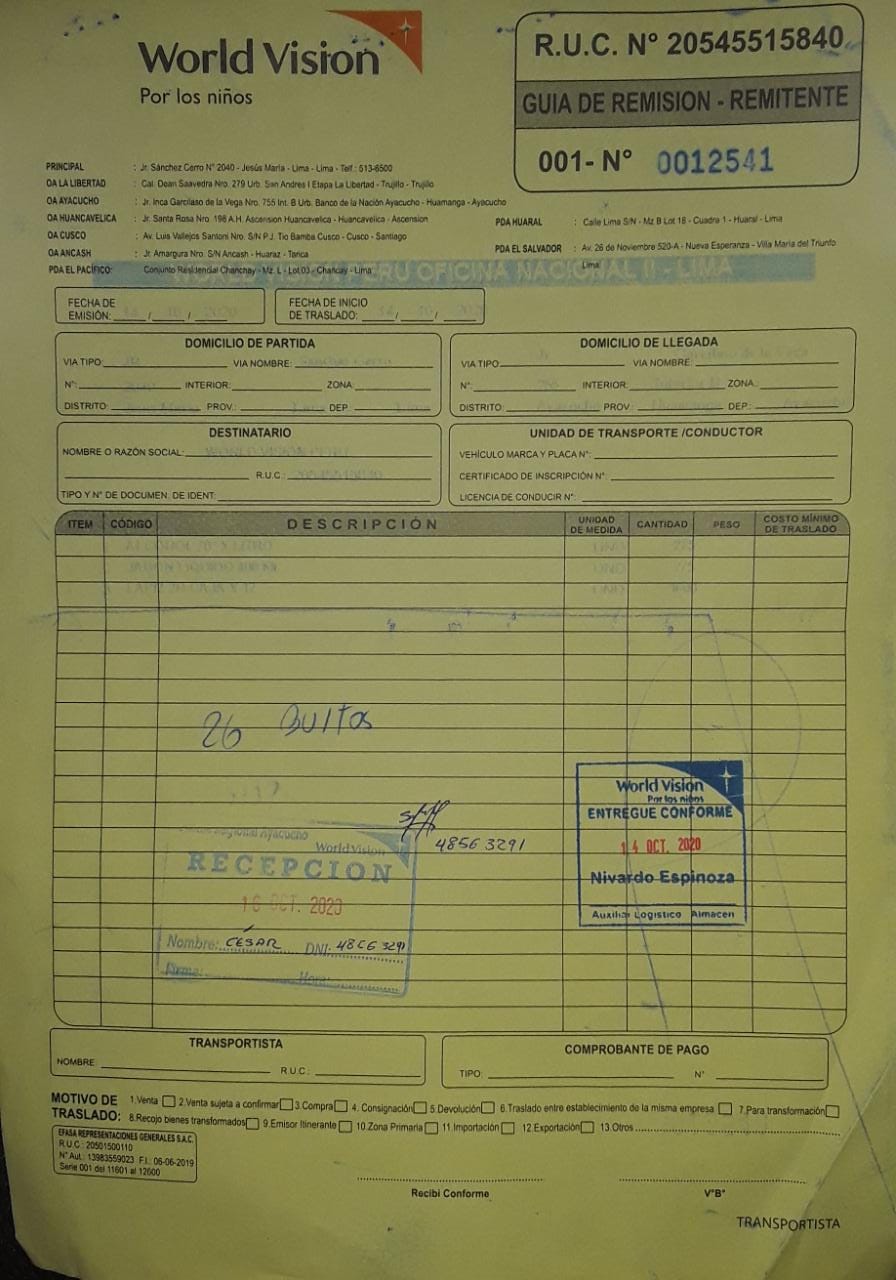 World Vision
Por los niños
R.U.C. N° 20545515840
GUIA DE REMISION - REMITENTE
001- N° 0012541
PRINCIPAL : Jr. Sánchez Cerro N° 2040 - Jesús María - Lima - Lima - Telf.: 513-6500
OA LA LIBERTAD : Cal. Dean Saavedra Nro. 279 Urb. San Andres I Etapa La Libertad - Trujillo - Trujillo
OA AYACUCHO : Jr. Inca Garcilaso de la Vega Nro. 755 Int. B Urb. Banco de la Nación Ayacucho - Huamanga - Ayacucho
OA HUANCAVELICA : Jr. Santa Rosa Nro. 196 A.H. Ascension Huancavelica - Huancavelica - Ascension
OA CUSCO : Av. Luis Vallejos Santoni Nro. S/N P.J. Tio Bamba Cusco - Cusco - Santiago
OA ANCASH : Jr. Amargura Nro. S/N Ancash - Huaraz - Tarica
PDA EL PACÍFICO: Conjunto Residencial Chanchay - Mz. L - Lot.03 - Chancay - Lima
PDA HUARAL : Calle Lima S/N - Mz B Lot 18 - Cuadra 1 - Huaral - Lima
PDA EL SALVADOR : Av. 26 de Noviembre 520-A - Nueva Esperanza - Villa Maria del Triunfo
Lima
WORLD VISION PERU OFICINA NACIONAL II - LIMA
FECHA DE
EMISIÓN: 14 / 10 / 2020
FECHA DE INICIO
DE TRASLADO: 14 / 10 /
DOMICILIO DE PARTIDA
VIA TIPO: VIA NOMBRE:
N°: INTERIOR: ZONA:
DISTRITO: PROV.: DEP.:
DOMICILIO DE LLEGADA
VIA TIPO: VIA NOMBRE:
N°: INTERIOR: ZONA.:
DISTRITO: PROV.: DEP.:
DESTINATARIO
NOMBRE O RAZÓN SOCIAL: WORLD VISION PERU
R.U.C.: 20545515840
TIPO Y N° DE DOCUMEN. DE IDENT.:
UNIDAD DE TRANSPORTE /CONDUCTOR
VEHÍCULO MARCA Y PLACA N°:
CERTIFICADO DE INSCRIPCIÓN N°:
LICENCIA DE CONDUCIR N°:
ITEM CÓDIGO DESCRIPCIÓN UNIDAD DE MEDIDA CANTIDAD PESO COSTO MÍNIMO DE TRASLADO
UND
UND
UND
26 Bultos
48563291
Regional Ayacucho
World Vision
RECEPCION
16 OCT. 2020
Nombre: CÉSAR DNI: 48563291
Firma: Hora:
World Vision
Por los niños
ENTREGUE CONFORME
14 OCT. 2020
Nivardo Espinoza
Auxiliar Logistico Almacen
TRANSPORTISTA
NOMBRE R.U.C.:
COMPROBANTE DE PAGO
TIPO: N°
MOTIVO DE TRASLADO: 1.Venta 2.Venta sujeta a confirmar 3.Compra 4. Consignación 5.Devolución 6.Traslado entre establecimiento de la misma empresa 7.Para transformación
8.Recojo bienes transformados 9.Emisor Itinerante 10.Zona Primaria 11.Importación 12.Exportación 13.Otros
EFASA REPRESENTACIONES GENERALES S.A.C.
R.U.C.: 20501500110
N° Aut.: 13983559023 F.I.: 06-06-2019
Serie 001 del 11601 al 12600
Recibi Conforme
V°B°
TRANSPORTISTA